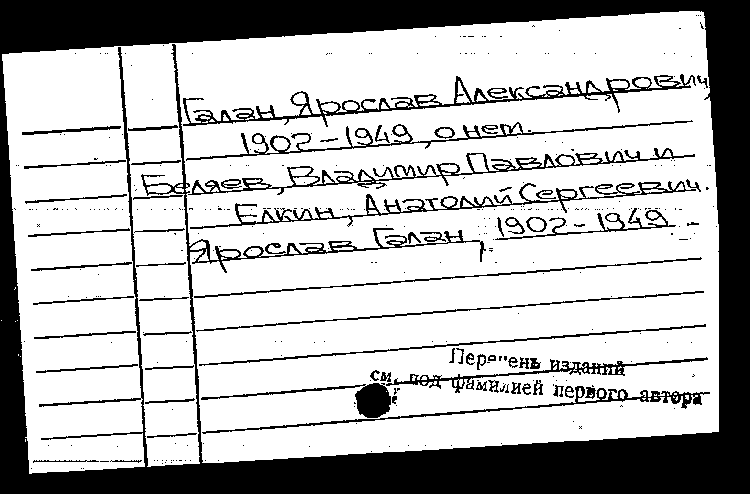 Галан, Ярослав Александрович,
1902-1949, о нем.
Беляев, Владимир Павлович и
Елкин, Анатолий Сергеевич.
Ярослав Галан, 1902-1949.
Перечень изданий
см. под фамилией первого автора